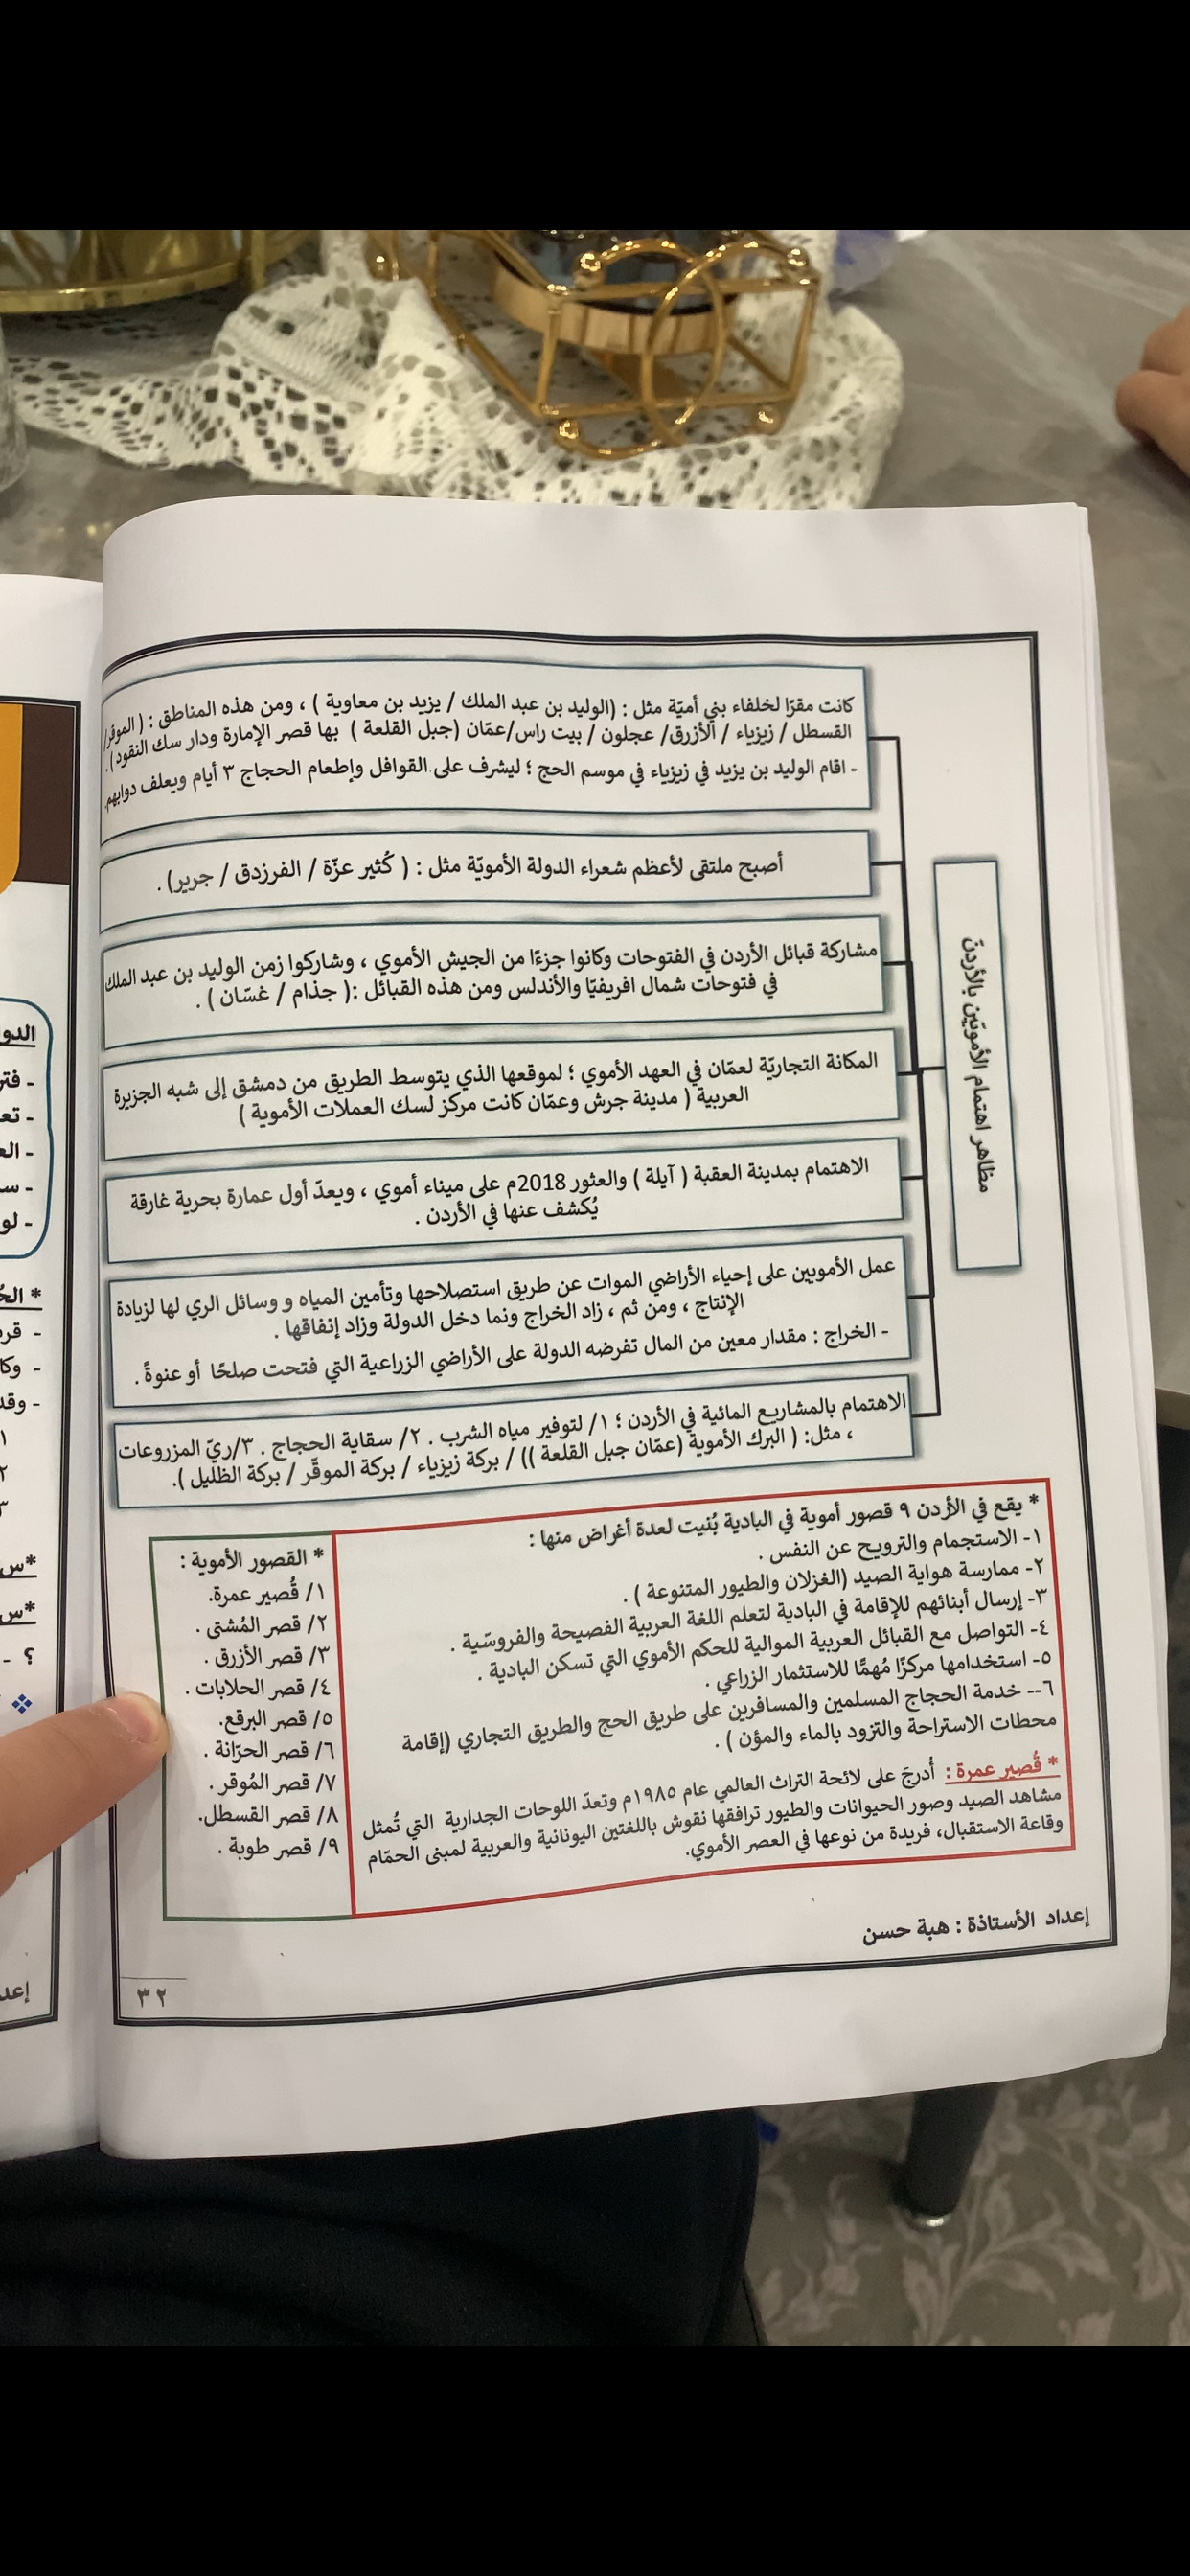 كانت مقرًا لخلفاء بني أميّة مثل : (الوليد بن عبد الملك / يزيد بن معاوية ) ، ومن هذه المناطق : ( الموقر/
القسطل / زيزياء / الأزرق/ عجلون / بيت راس/عمّان (جبل القلعة ) بها قصر الإمارة ودار سك النقود).
- اقام الوليد بن يزيد في زيزياء في موسم الحج ؛ ليشرف على القوافل وإطعام الحجاج ٣ أيام ويعلف دوابهم.
أصبح ملتقى لأعظم شعراء الدولة الأمويّة مثل : ( كُثير عزّة / الفرزدق / جرير) .
مظاهر اهتمام الأمويّين بالأردنّ
مشاركة قبائل الأردن في الفتوحات وكانوا جزءًا من الجيش الأموي ، وشاركوا زمن الوليد بن عبد الملك
في فتوحات شمال افريقيّا والأندلس ومن هذه القبائل :( جذام / غسّان ) .
المكانة التجاريّة لعمّان في العهد الأموي ؛ لموقعها الذي يتوسط الطريق من دمشق إلى شبه الجزيرة
العربية ( مدينة جرش وعمّان كانت مركز لسك العملات الأموية )
الاهتمام بمدينة العقبة ( آيلة ) والعثور 2018م على ميناء أموي ، ويعدّ أول عمارة بحرية غارقة
يُكشف عنها في الأردن .
عمل الأمويين على إحياء الأراضي الموات عن طريق استصلاحها وتأمين المياه و وسائل الري لها لزيادة
الإنتاج ، ومن ثم ، زاد الخراج ونما دخل الدولة وزاد إنفاقها .
- الخراج : مقدار معين من المال تفرضه الدولة على الأراضي الزراعية التي فتحت صلحًا أو عنوةً .
الاهتمام بالمشاريع المائية في الأردن ؛ ١/ لتوفير مياه الشرب . ٢/ سقاية الحجاج . ٣/ريّ المزروعات
، مثل: ( البرك الأموية (عمّان جبل القلعة )) / بركة زيزياء / بركة الموقّر / بركة الظليل ).
* يقع في الأردن ٩ قصور أموية في البادية بُنيت لعدة أغراض منها :
١- الاستجمام والترويح عن النفس .
٢- ممارسة هواية الصيد (الغزلان والطيور المتنوعة ) .
٣- إرسال أبنائهم للإقامة في البادية لتعلم اللغة العربية الفصيحة والفروسّية .
٤- التواصل مع القبائل العربية الموالية للحكم الأموي التي تسكن البادية .
٥- استخدامها مركزًا مُهمًّا للاستثمار الزراعي .
٦-- خدمة الحجاج المسلمين والمسافرين على طريق الحج والطريق التجاري (إقامة
محطات الاستراحة والتزود بالماء والمؤن ) .
* قُصير عمرة : أُدرجَ على لائحة التراث العالمي عام ١٩٨٥م وتعدّ اللوحات الجدارية التي تُمثل
مشاهد الصيد وصور الحيوانات والطيور ترافقها نقوش باللغتين اليونانية والعربية لمبنى الحمّام
وقاعة الاستقبال، فريدة من نوعها في العصر الأموي.
* القصور الأموية :
١/ قُصير عمرة.
٢/ قصر المُشتى .
٣/ قصر الأزرق .
٤/ قصر الحلابات .
٥/ قصر البرقع.
٦/ قصر الحرّانة .
٧/ قصر المُوقر .
٨/ قصر القسطل.
٩/ قصر طوبة .
إعداد الأستاذة : هبة حسن
٣٢